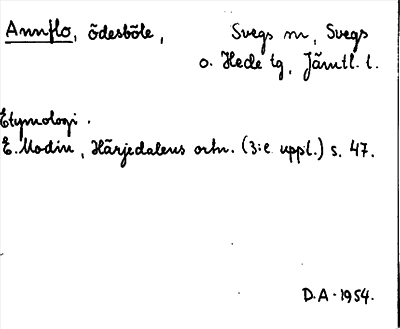 Annflo, ödesböle, Svegs m, Svegs
o. Hede tg, Jämtl. l.
Etymologi.
E. Modin, Härjedalens ortn. (3:e uppl.) s. 47.
D.A. 1954.